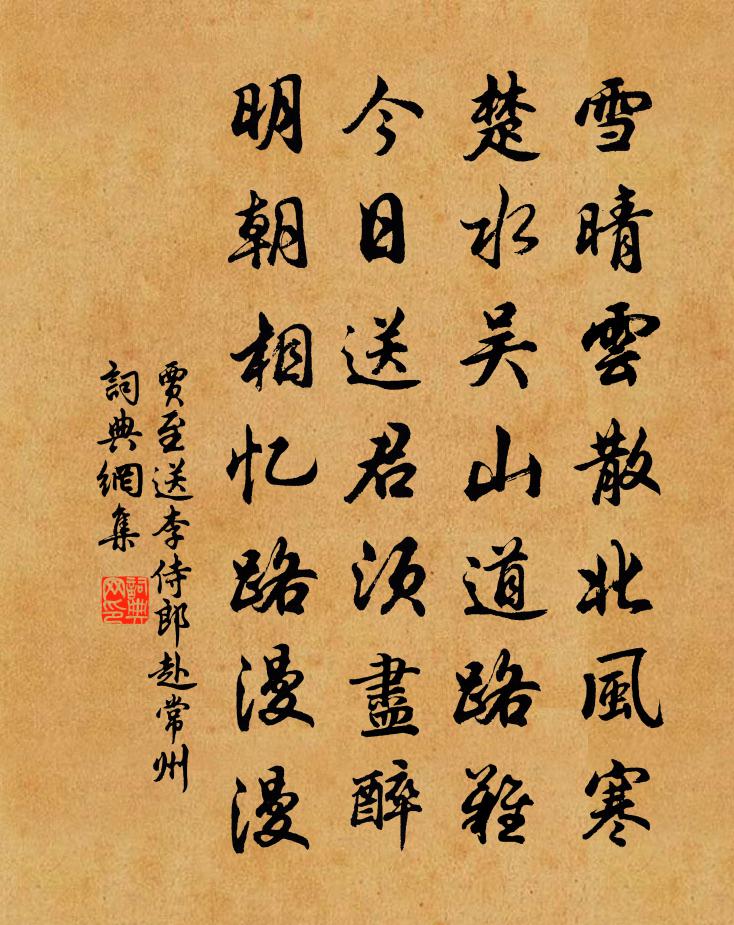 雪晴雲散北風寒
楚水吴山道路難
今日送君須盡醉
明朝相忆路漫漫
賈至送李侍郎赴常州
詞典網集
詞典网印